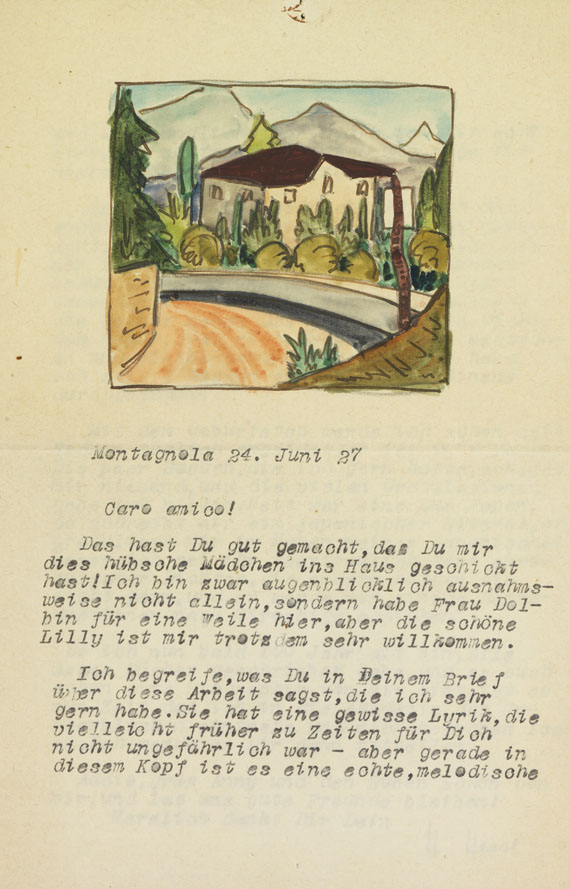 Montagnola 24. Juni 27
Caro amico!
Das hast Du gut gemacht,das Du mir
dies hübsche Mädchen ins Haus geschickt
hast!Ich bin zwar augenblicklich ausnahms-
weise nicht allein,sondern habe Frau Dol-
bin für eine Weile hier,aber die schöne
Lilly ist mir trotzdem sehr willkommen.
Ich begreife,was Du in Deinem Brief
über diese Arbeit sagst,die ich sehr
gern habe.Sie hat eine gewisse Lyrik,die
vielleicht früher zu Zeiten für Dich
nicht ungefährlich war - aber gerade in
diesem Kopf ist es eine echte,melodische